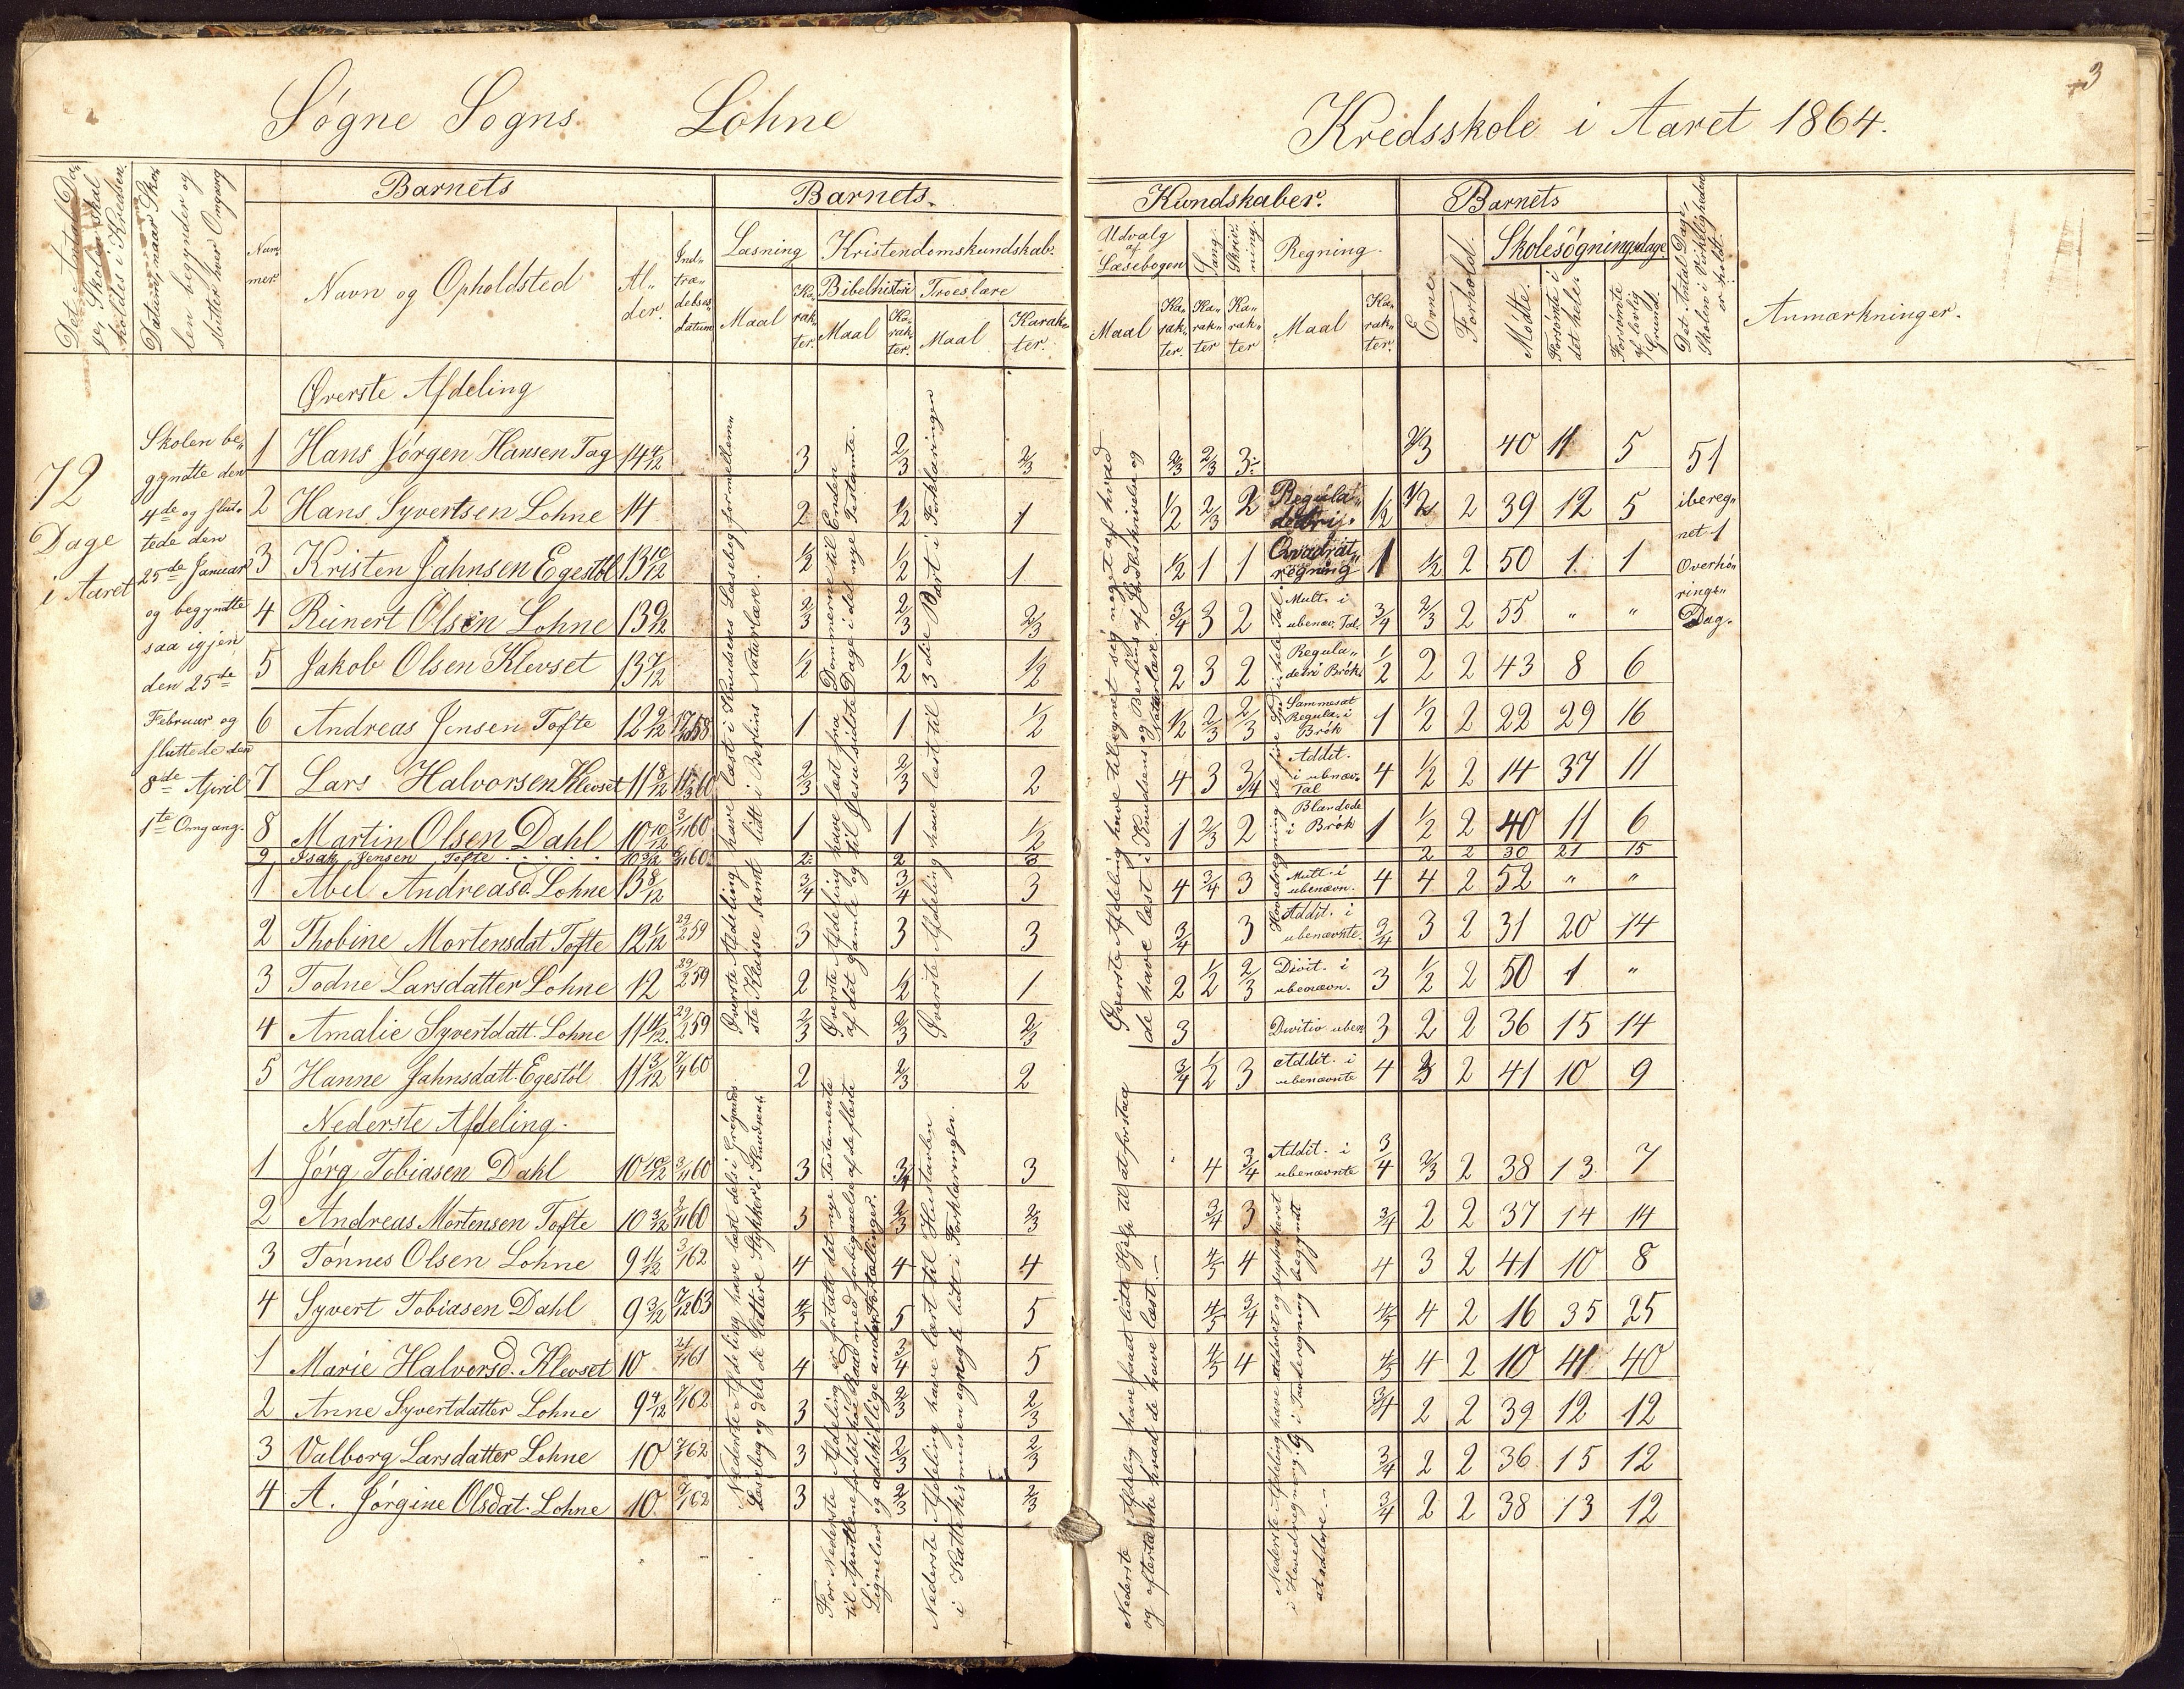 3
Søgne Sogns Lohne
Kredsskole i Aaret 1864.
Det Antal Da„
ge, Skolen skal
holdes i Kredsen.
Datum, naar Sko„
len begynder og
slutter hver Omgang
Barnets
Num„
mer.
Navn og Opholdsted
Al„
der.
Ind„
træ„
delses„
datum
Barnets
Læsning
Maal
Ka„
rak„
ter.
Kristendomskundskab.
Bibelhistorie
Maal
Ka„
rak„
ter.
Troeslære
Maal
Karak„
ter.
Kundskaber.
Udvalg
af
Læsebogen
Maal
Ka„
rak„
ter.
Sang.
Ka„
rak„
ter
Skriv„
ning.
Ka„
rak„
ter
Regning.
Maal
Ka„
rak„
ter.
Barnets
Evner
Forhold.
Skolesøgningsdage.
Mødte.
Forsømte i
det hele.
Forsømte
af lovlig
Grund.
Det Antal Dage,
Skolen i Virkligheden
er holdt.
Anmærkninger.
72
Dage
i Aaret
Skolen be„
gyndte den
4de og slut„
tede den
25de Januar
og begyndte
saa igjen
den 25de
Februar og
sluttede den
8de April
1ste Omgang.
Øverste Afdeling
1 Hans Jørgen Hansen Tag 14 4/12 3 2/3 2/3 2/3 2/3 3 2/3 40 11 5
2 Hans Syvertsen Lohne 14 2 1/2 1 1/2 2/3 2 Regula 1/2 1/2 2 39 12 5
3 Kristen Jahnsen Egestøl 13 10/12 1/2 1/2 1 1/2 1 1 Qvadrat„ regning 1 1/2 2 50 1 1
4 Reinert Olsen Lohne 13 9/12 2/3 2/3 2/3 3/4 3 2 Mult. i ubenæv. Tal. 3/4 2/3 2 55 „ „
5 Jakob Olsen Klevset 13 7/12 1/2 1/2 1/2 2 3 2 Regula„ detri Brøk. 1/2 2 2 43 8 6
6 Andreas Jensen Tofte 12 9/12 1 1 1/2 1/2 2/3 2/3 Sammesat Regula. i Brøk 1 1/2 2 22 29 16
7 Lars Halvorsen Klevset 11 8/12 2/3 2/3 2 4 3 3/4 Addit. i ubnæv. Tal 4 1/2 2 14 37 11
8 Martin Olsen Dahl 10 10/12 3/11 60 1 1 1/2 1 2/3 2 Blandede i Brøk 1 1/2 2 40 11 6
9 Isak Jensen Tofte 10 3/12 2 2 3 2 2 30 21 15
1 Abel Andreasd. Lohne 13 8/12 3/4 3/4 3 4 3/4 3 Mult. i ubenævn. 4 4 2 52 „ „
2 Thobine Mortensdat Tofte 12 1/12 29/2 59 3 3 3 3/4 3 Addit. i ubenævnte. 3/4 3 2 31 20 14
3 Todne Larsdatter Lohne 12 29/2 59 2 1/2 1 2 1/2 2/3 Divit. i ubenævn. 3 1/2 2 50 1 „
4 Amalie Syvertdatt. Lohne 11 4/12 29/2 59 2/3 2/3 2/3 3 Divitio uben 3 2 2 36 15 14
5 Hanne Jahnsdatt. Egestøl 11 3/12 7/4 60 2 2/3 2 3/4 1/2 3 Addit. i ubenævnte 4 2/3 2 41 10 9
Nederste Afdeling.
1 Jørg Tobiasen Dahl 10 10/12 3/11 60 3 3/4 3 „ 4 3/4 Addit. i ubenævnte 3/4 2/3 2 38 13 7
2 Andreas Mortensen Tofte 10 3/12 3 2/3 2/3 3/4 3 3/4 2 2 37 14 14
3 Tønnes Olsen Lohne 9 11/12 4 4 4 4/5 4 4 3 2 41 10 8
4 Syvert Tobiasen Dahl 9 3/12 4/5 5 5 4/5 3/4 4/5 4 2 16 35 25
1 Marie Halvorsd. Klevset 10 4 3/4 5 4/5 4 4/5 4 2 10 41 40
2 Anne Syvertdatter Lohne 9 4/12 3 2/3 2/3 3/4 2 2 39 12 12
3 Valborg Larsdatter Lohne 10 3 2/3 2/3 3/4 2 2 36 15 12
4 A. Jørgine Olsdat. Lohne 10 3 2/3 2/3 3/4 2 2 38 13 12
51
ibereg„
net 1
Overhø„
rings„
Dag.
Øverste Afdeling have læst i Knudsens Læsebog for mellem„
ste Klasse samt lidt i Berlins Naturlære.
Øverste Afdeling have læst fra Dommerne til Enden
af det gamle og til Jesu sidste Dage i det nye Testamente.
Øverste Afdeling have læst til 3die Part i Forklaringen
Øverste Afdeling have tilegnet sig noget af hvad
de have læst i Knudsens og Berlins af Jordbeskrivelse og
Naturlære.
Hovedregning de fire Sp. i hele Tal.
Nederste Afdeling have læst dels i Grøgaards
Læsebog og dels de lettere Stykker i Knudsens.
For Nederste Afdeling er fortalt det nye Testamente
til Apostlene for det høie Raad med forbigaaelse af de fleste
Lignelser og adskillige andre Fortællinger.
Nederste Afdeling have læst til Hustavlen
i Katekismusen og nogle lidt i Forklaringen.
Nederste Afdelig have faaet lidt Hjelp til at forstaa
og eftertænke hvad de have læst.
Nederste Afdeling have adderet og subtraheret
i Hovedregning. Og i Tavleregning begyndt
at addere.